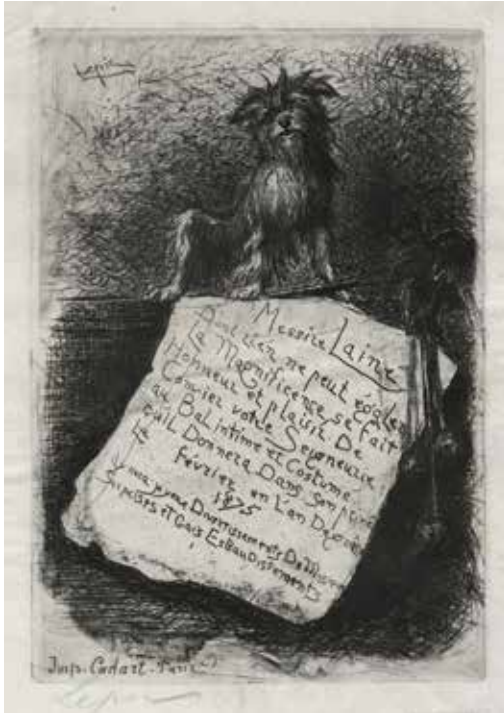 Messire Laine
Dont rien ne peut égaler
La Magnificence se fait
Honneur et plaisir De
Convier votre Seigneurie
au Bal intime et Costumé
qu'il Donnera Dans Son
Le Février en Lan De
1875
Il y aura Divertissements De
Surprises et Gais EsBauDissements
Imp. Cadart. Paris